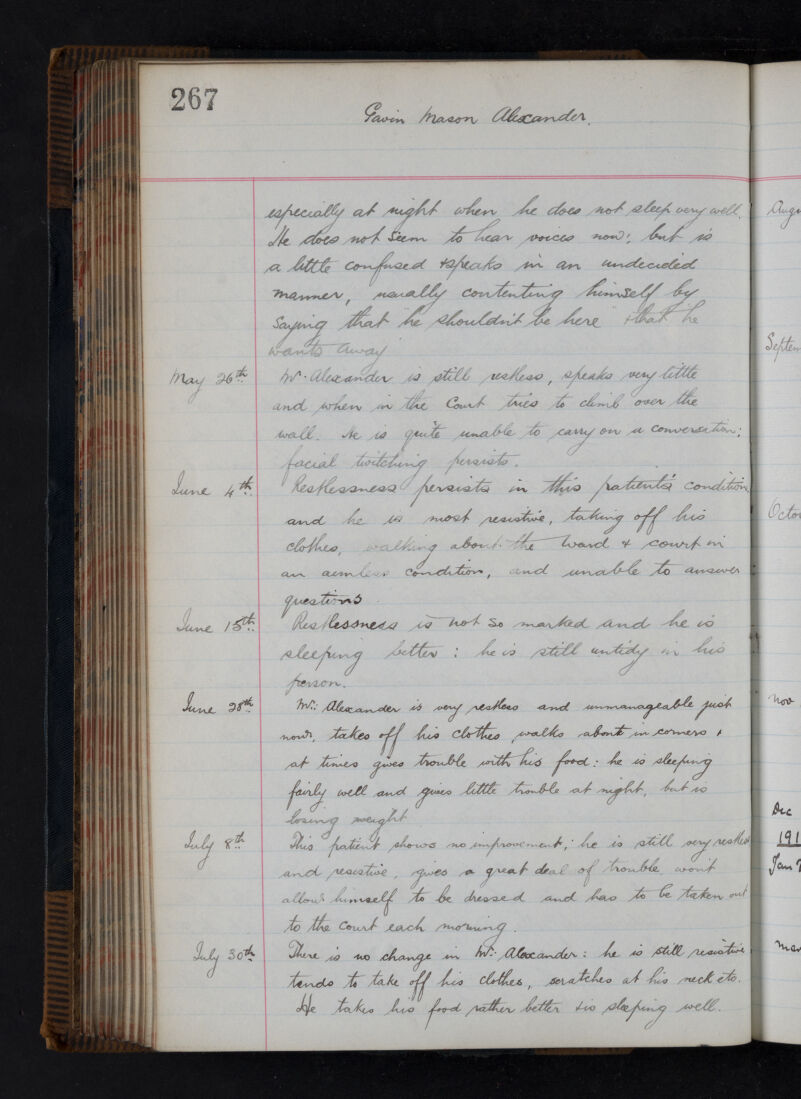 267
Gavin Mason Alexander.
especially at night when he does not sleep very well.
He does not seem to hear voices now; but is
a little confused & speaks in an undecided
manner, usually contenting himself by
saying that he shouldn't be here & that he
wants away
May 26th. Mr. Alexander is still restless, speaks very little
and when in the Court tries to climb over the
wall. He is quite unable to carry on a conversation;
facial twitching persists.
June 4th. Restlessness persists in this patient's condition
and he is most resistive, taking off his
clothes, walking about the ward & court in
an aimless condition, and unable to answer
questions.
June 15th. Restlessness is not so marked and he is
sleeping better: he is still untidy in his
person.
June 28th. Mr. Alexander is very restless and unmanageable just
now, takes off his clothes walks about in corners &
at times gives trouble with his food: he is sleeping
fairly well and gives little trouble at night, but is
losing weight
July 8th This patient shows no improvement; he is still very restless
and resistive, gives a great deal of trouble won't
allow himself to be dressed and has to be taken out
to the court each morning.
July 30th There is no change in Mr. Alexander: he is still resistive
tends to take off his clothes, scratches at his neck etc.
He takes his food rather better & is sleeping well.
Augu
Septem
Octo
Nov
Dec
191
Jan
Mar